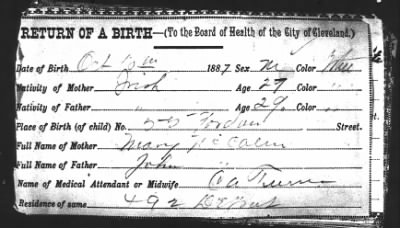 RETURN OF A BIRTH—(To the Board of Health of the City of Cleveland.)
Date of Birth Oct 1887. Sex M Color White
Nativity of Mother Irish Age 27 Color "
Nativity of Father " Age 29. Color "
Place of Birth (of child) No. 55 Street.
Full Name of Mother Mary
Full Name of Father John "
Name of Medical Attendant or Midwife
Residence of same 492